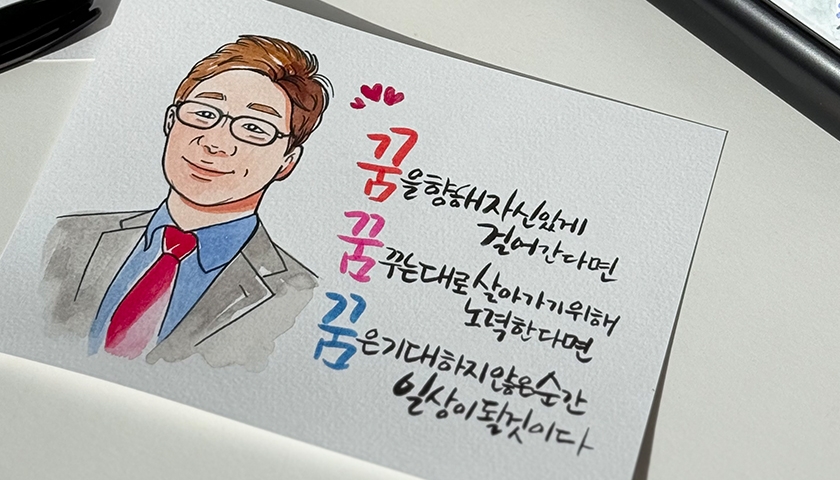 꿈을향해자신있게
걸어간다면
꿈꾸는대로살아가기위해
노력한다면
꿈은기대하지않은순간
일상이될것이다